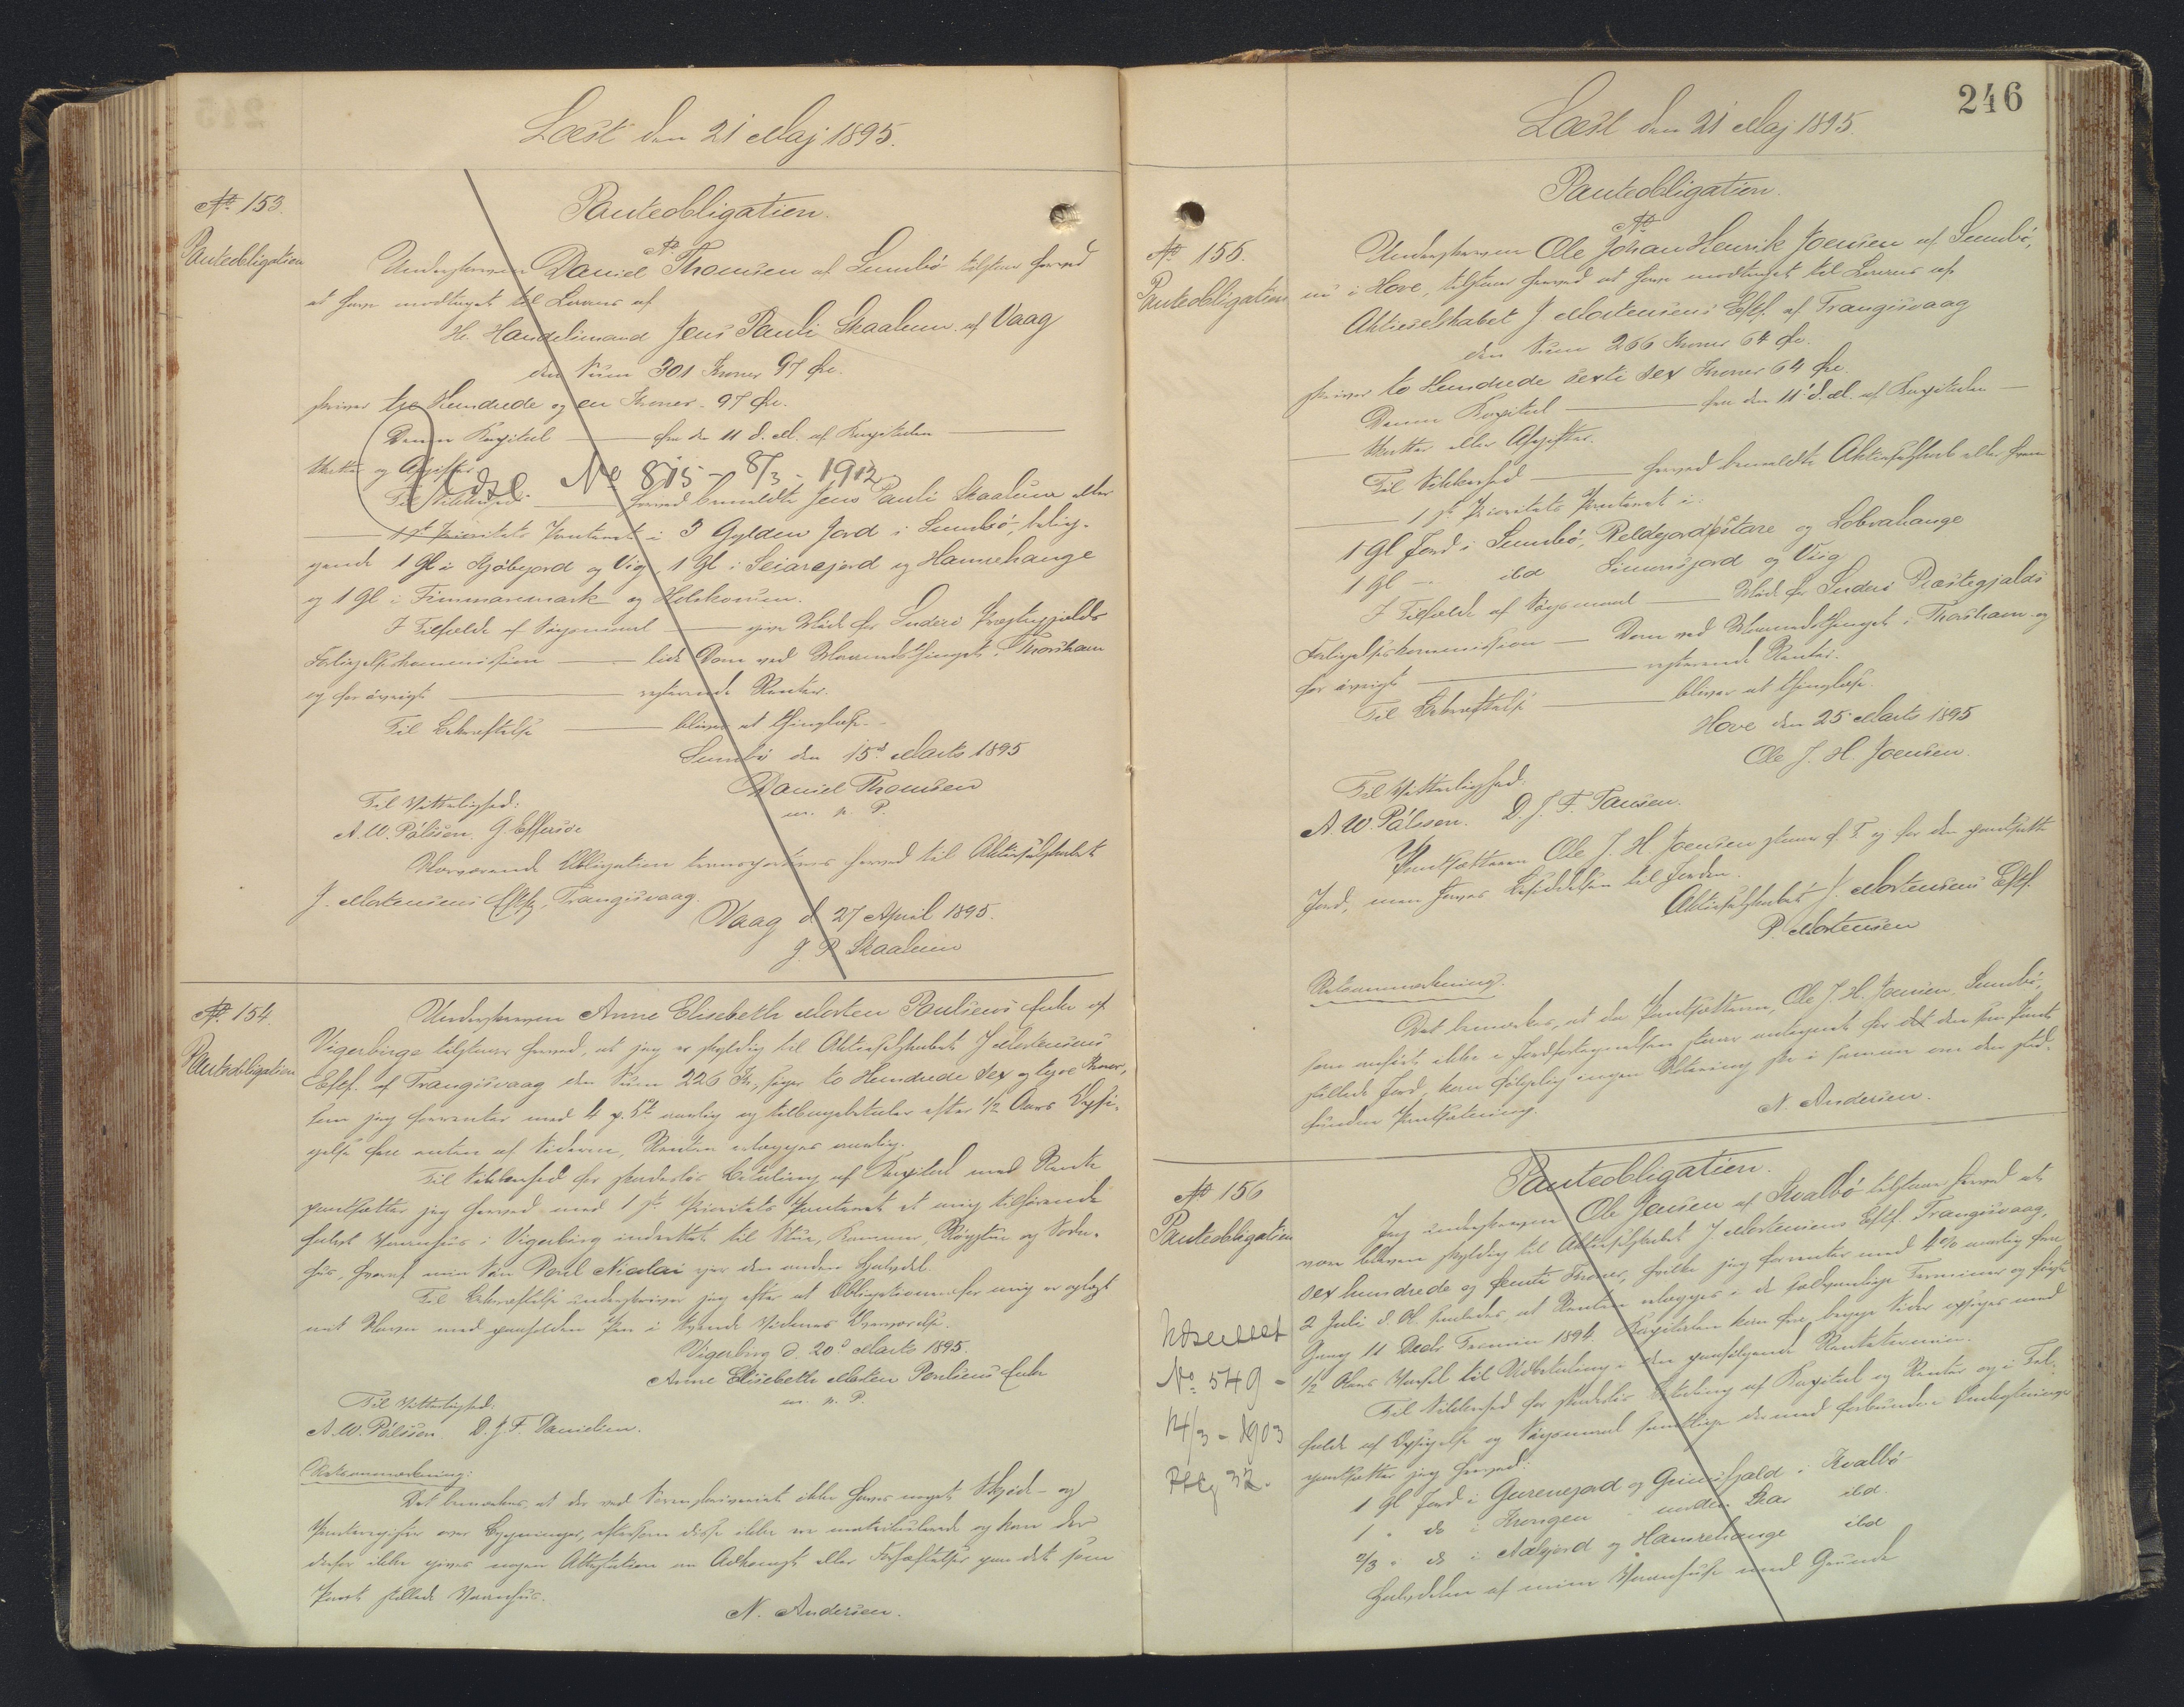 Læst den 21 Maj 1895.
No 153.
Panteobligation
Panteobligation.
No
Underskrevne Daniel Thomsen af Sumbö tilstaar herved
at have modtaget til Laans af
Hr. Handelsmand Jens Pauli Skaalum af Vaag
den Sum 301 Kroner 97 Øre.
skriver tre Hundrede og en Kroner 97 Øre.
Denne Kapital — fra den 11 d. M. af Kapitalen —
Skatter og Afgifter
Udsl. No 815 - 8/3 - 1912
Til Sikkerhed — herved bemeldte Jens Pauli Skaalum eller
— 1st Prioritets Panteret i 3 Gylden Jord i Sumbö, belig-
gende 1 Gl i Kjøbejord og Vig, 1 Gl i Seiarejord og Hamrehauge
og 1 Gl i Timmaremark og
I Tilfælde af Søgsmaal — give Møde for Suderö Præstegjælds
Forligelseskommission — lide Dom ved Sorenskriverthinget i Thorshavn
og for øvrigt — resterende Renter.
Til Bekræftelse — bliver at thinglæse.
Sumbö den 15d Marts 1895
Daniel Thomsen
m. p. P.
Til Vitterlighed:
A. W. Pálsson. G. Effersøe
Nærværende Obligation transporteres herved til Aktieselskabet
J. Mortensens Eftf., Trangisvaag.
Vaag d 27 April 1895.
J. P. Skaalum
No 154.
Panteobligation
Underskrevne Anne Elisebeth Morten Poulsens Enke af
Vigerbirge tilstaar herved, at jeg er skyldig til Aktieselskabet J Mortensens
Eftf. af Trangisvaag den Sum 226 Kr., siger to Hundrede sex og tyve Kroner,
som jeg forrenter med 4 p. Ct aarlig og tilbagebetaler efter 1/2 Aars Opsi-
gelse fra enten af Siderne, Renten erlægges aarlig.
Til Sikkerhed for skadesløs Betaling af Kapital med Rente
pantsætter jeg herved med 1ste Prioritets Panteret et mig tilhørende
halvt Vaanhus i Vigerbirg indrettet til Stue, Kammer, Røgstue og
hus, hvoraf min Søn Poul Nicolai ejer den anden Halvdel.
Til Bekræftelse underskriver jeg efter at Obligationen for mig er oplæst
mit Navn med paaholden Pen i tvende Vidners Overværelse.
Vigerbirg d. 20d Marts 1895.
Anne Elisebeth Morten Poulsens Enke
m. p. P.
Til Vitterlighed:
A. W. Pálsson D. J. F. Danielsen.
Retsanmærkning:
Det bemærkes, at der ved Sorenskriveriet ikke haves noget Skjøde- og
Panteregister over Bygninger, eftersom disse ikke ere matrikulerede og kan der
derfor ikke gives nogen Attestation om Adkomst eller Forhæftelser paa det som
Pant stillede Vaanhus.
N. Andersen.
246
Læst den 21 Maj 1895.
No 155.
Panteobligation
Panteobligation.
No
Underskreven Ole Johan Henrik Joensen af Sumbö,
nu i Hove, tilstaar herved at have modtaget til Laans af
Aktieselskabet J Mortensens Eftf. af Trangisvaag
den Sum 266 Kroner 64 Øre.
skriver to Hundrede sexti sex Kroner 64 Øre.
Denne Kapital — fra den 11' d. M. af Kapitalen —
— Skatter eller Afgifter.
Til Sikkerhed — herved bemeldte Aktieselskab eller frem
— 1ste Prioritets Panteret i:
1 Gl Jord i Sumbö, og Lobrahauge
1 Gl — ibd Simunsjord og Vig
I Tilfælde af Søgsmaal — Møde for Suderö Præstegjælds
Forligelseskommission — Dom ved Sorenskriverthinget i Thorshavn og
for øvrigt — resterende Renter.
Til Bekræftelse — bliver at thinglæse.
Hove den 25 Marts 1895
Ole J. H. Joensen.
Til Vitterlighed.
A. W. Pálsson. D. J. F. Poulsen.
Pantsætteren Ole J. H Joensen staar p. T. ej for den pantsatte
Jord, men haves Besiddelsen til Jorden.
Aktieselskabet J. Mortensens Eftf.
P. Mortensen
Retsanmærkning.
Det bemærkes, at da Pantsætteren, Ole J. H. Joensen, Sumbö,
som anført ikke i Jordfortegnelsen staar antegnet for det den som Pant
stillede Jord, kan følgelig ingen Notering ske i samme om den sted-
fundne Pantsætning.
N. Andersen.
No 156
Panteobligation
Panteobligation.
Jeg underskrevne Ole Jensen af Kvalbö tilstaar herved at
være bleven skyldig til Aktieselskabet J Mortensens Eftf. Trangisvaag,
sex hundrede og femti Kroner, hvilke jeg forrenter med 4% aarlig fra
2 Juli d. A. saaledes, at Renten erlægges i de sædvanlige Terminer og første
Gang 11 Decbr Termin 1894. Kapitalen kan fra begge Sider opsiges med
1/2 Aars Varsel til Udbetaling i den paafølgende Rentetermin.
Udslettet
No 549 -
14/3 - 1903
Til Sikkerhed for skadesløs Betaling af Kapital og Renter og i Til-
fælde af Opsigelse og Søgsmaal samtlige dermed forbundne Omkostninger
pantsætter jeg herved:
1 Gl Jord i Gurenejord og Grimsfjald i Kvalbö
1 " do i Krongen under Brar ibd.
2/3 " do i Aalejord og Hamrehauge ibd
Halvdelen af mine Vaanhuse med Grunde